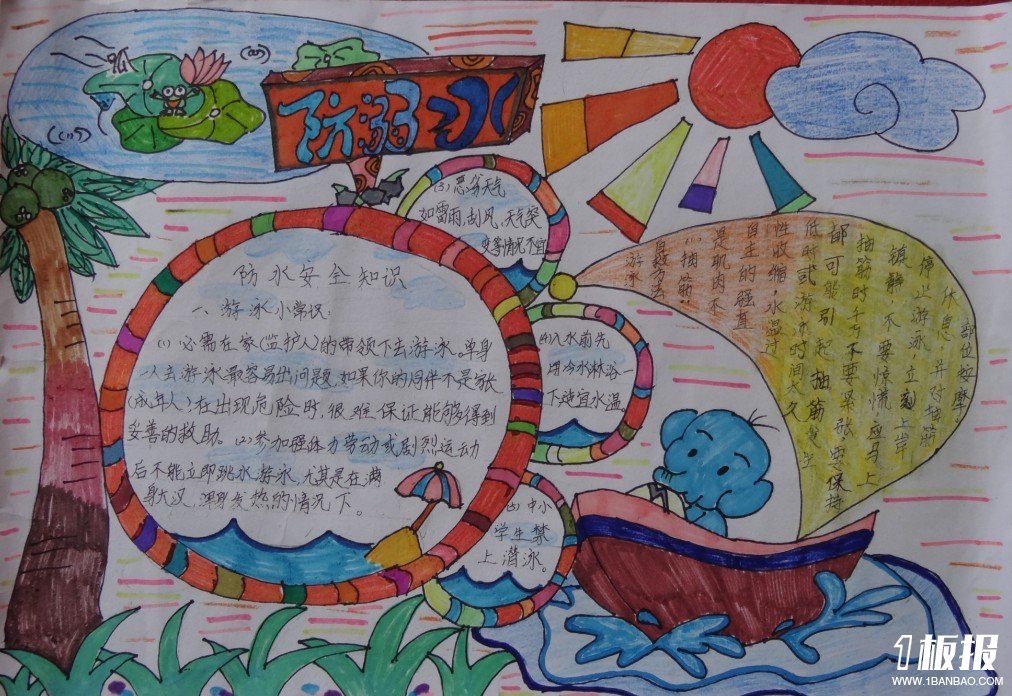 防溺水
防水安全知识
一、游泳小常识：
(1) 必需在家(监护人)的带领下去游泳。单身
一人去游泳最容易出问题，如果你的同伴不是家长
(成年人)，在出现危险时，很难保证能够得到
妥善的救助。(2)参加强体力劳动或剧烈运动
后不能立即跳水游泳，尤其是在满
身大汉，浑身发热的情况下。
(3) 恶劣天气
如雷雨、刮风、天气突
变等情况不宜
(4)入水前先
用冷水淋浴一
下适宜水温。
(5) 中小
学生禁
上潜泳。
游泳
自救方法
(一)抽筋：
是肌肉不
自主的强直
性收缩，水温过
低时或游泳时间太久
都可能引起抽筋
抽筋时千万不要呆张，要保持
镇静，不要惊慌，应马上
停止游泳，立刻上岸
休息，并对抽筋
部位按摩。
1板报
WWW.1BANBAO.COM